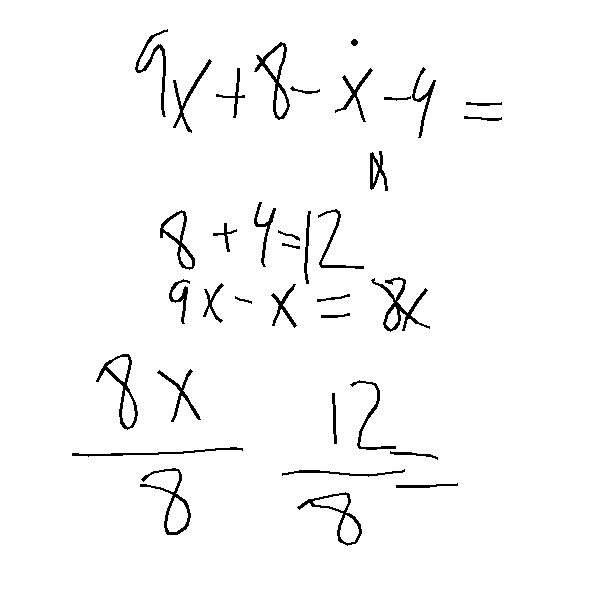 9x+8-x-4=
x
8+4=12
9x-x=8x
8x 12
8 8=